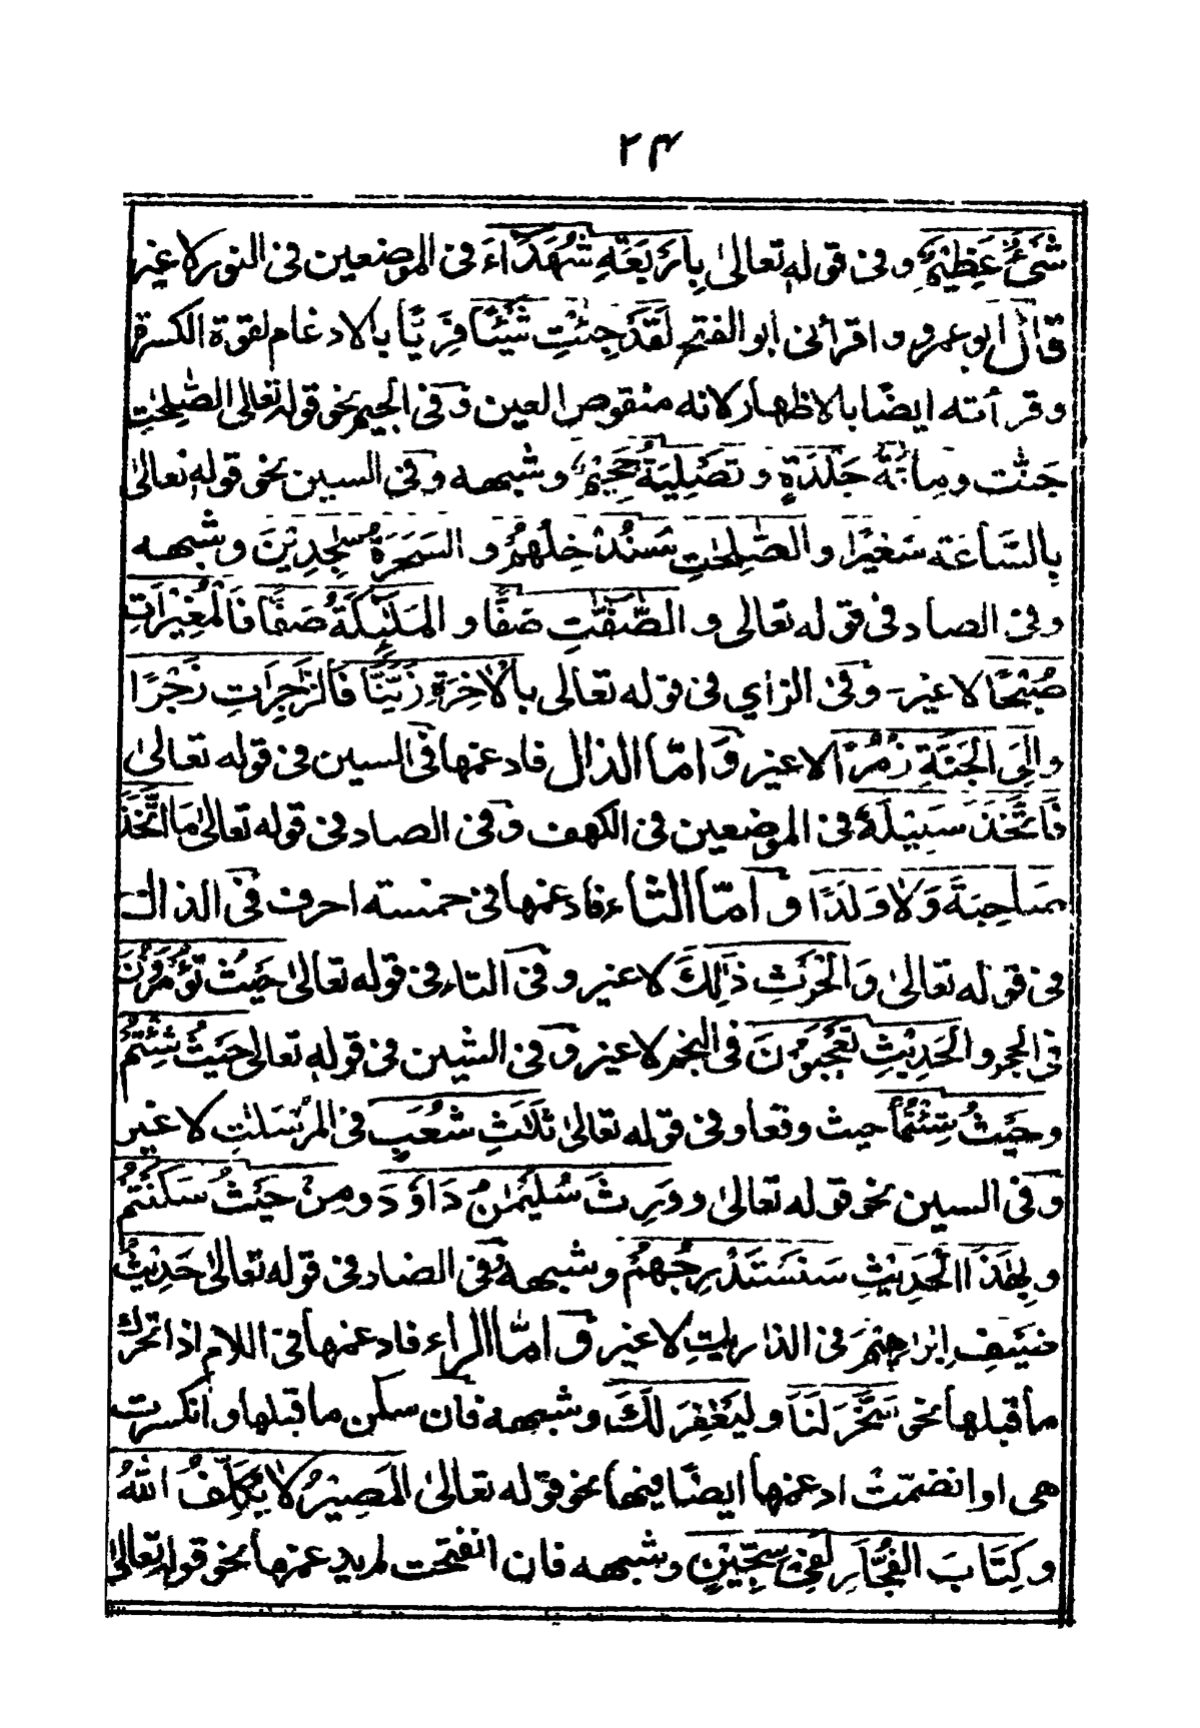 ٢٤
شَيْءٌ عَظِيْمٌ وفى قوله تعالىٰ بِاَرْبَعَةِ شُهَدَاءَ فى الموضعين فى النور لا غير
قال ابو عمرو واقرأنى ابو الفتح لَقَدْ جِئْتِ شَيْئًا فَرِيًّا بالادغام لقوة الكسرة
وقرأته ايضًا بالاظهار لانه منقوص العين وفى الجيم نحو قوله تعالى الصّٰلِحٰتِ
جَنّٰت ومِائَةَ جَلْدَةٍ وتَصْلِيَةُ جَحِيْمٍ وشبهه وفى السين نحو قوله تعالىٰ
بِالسَّاعَة سَعِيْرًا والصّٰلِحٰتِ سَنُدْخِلُهُمْ والسَحَرَةُ سٰجِدِيْنَ وشبهه
وفى الصاد فى قوله تعالى والصّٰفّٰتِ صَفًّا والمَلٰٓئِكَةُ صَفًّا فَالْمُغِيْرَاتِ
صُبْحًا لا غير وفى الزاي فى قوله تعالى بالْاٰخِرَةِ زَيَّنَّا فَالزّٰجِرَاتِ زَجْرًا
واِلَى الجَنَّةِ زُمَرًا لا غير وَامّا الذال فادغمها فى السين فى قوله تعالىٰ
فَاتَّخَذَ سَبِيْلَهٗ فى الموضعين فى الكهف وفى الصاد فى قوله تعالىٰ مَا اتَّخَذَ
صَاحِبَةً وَلَا وَلَدًا وَامّا الثاء فادغمها فى خمسة احرف فى الذال
فى قوله تعالىٰ وَالْحَرْثِ ذٰلِكَ لا غير وفى التاء فى قوله تعالىٰ حَيْثُ تُؤْمَرُوْنَ
فى الحجر والْحَدِيْثِ تَعْجَبُوْنَ فى النجم لا غير وفى الشين فى قوله تعالى حَيْثُ شِئْتُمْ
وحَيْثُ شِئْتُمَا حيث وقعا وفى قوله تعالىٰ ثَلٰثِ شُعَبٍ فى المرْسَلٰتِ لا غير
وفى السين نحو قوله تعالىٰ ووَرِثَ سُلَيْمٰنُ دَاوٗدَ ومِنْ حَيْثُ سَكَنْتُمْ
وبِهٰذَا الْحَدِيْثِ سَنَسْتَدْرِجُهُمْ وشبهه وفى الضاد فى قوله تعالىٰ حَدِيْثُ
ضَيْفِ اِبْرَاهِيْمَ فى الذاريٰتِ لا غير وَامّا الراء فادغمها فى اللام اذا تحرك
ما قبلها نحو سَخَّرَ لَنَا ولِيَغْفِرَ لَكَ وشبهه فان سكن ما قبلها وانكسرت
هى او انضمّت ادغمها ايضًا فيها نحو قوله تعالىٰ الْمَصِيْرُ لَا يُكَلِّفُ اللهُ
وكِتَابَ الفُجَّارِ لَفِىْ سِجِّيْنٍ وشبهه فان انفتحت لم يدغمها نحو قوله تعالىٰ